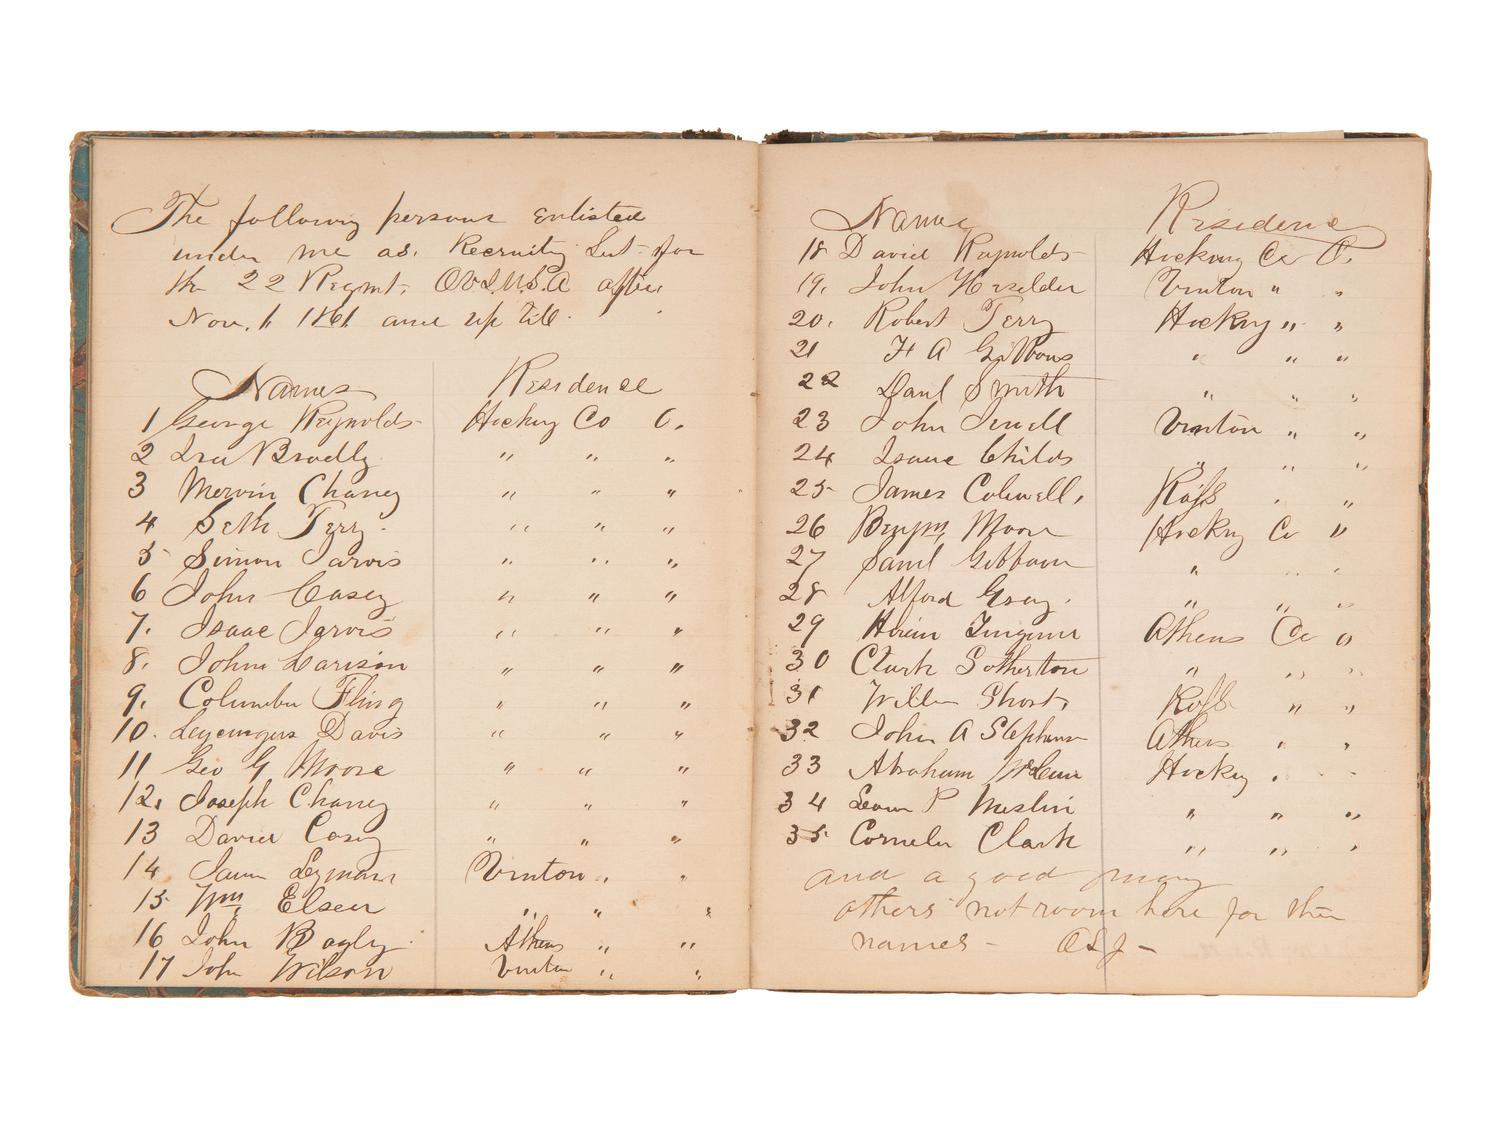 The following persons Enlisted
under me as. Recruitg Lut. for
the 22 Regmt. OVI. U.S.A after
Nov. 1 1861 and up till.
Names Residence
1 George Reynolds Hocking Co O.
2 Ira Bradly " " "
3 Mervin Chaney " " "
4 Seth Terry. " " "
5 Simon Jarvis " " "
6 John Casey " " "
7. Isaac Jarvis " " "
8. John Larison " " "
9. Columbu Fling " " "
10. Davis " " "
11 Geo G Moore " " "
12. Joseph Chaney " " "
13 David Casey " " "
14 Vinton " "
15 Wm, Elser " " "
16 John Bagly. Athens " "
17 John Wilson Vinton " "
Names Residence
18 David Reynolds Hocking Co O.
19. John Vinton " "
20. Robert Terry Hocking " "
21 H A Gibbons " " "
22 Danl Smith " " "
23 John Jewell Vinton " "
24 Isaac Childs " " "
25 James Colwell, Ross " "
26 Benjm, Moore Hocking Co "
27 Saml Gibbons " " "
28 Alford Gray. " " "
29 Hiram Athens Co "
30 Clark Sotherton " " "
31 Short, Ross " "
32 John A Stephens Athens " "
33 Abraham Hocking " "
34 P " " "
35 Cornelu Clark " " "
and a good many
others not room here for their
names - ASJ -